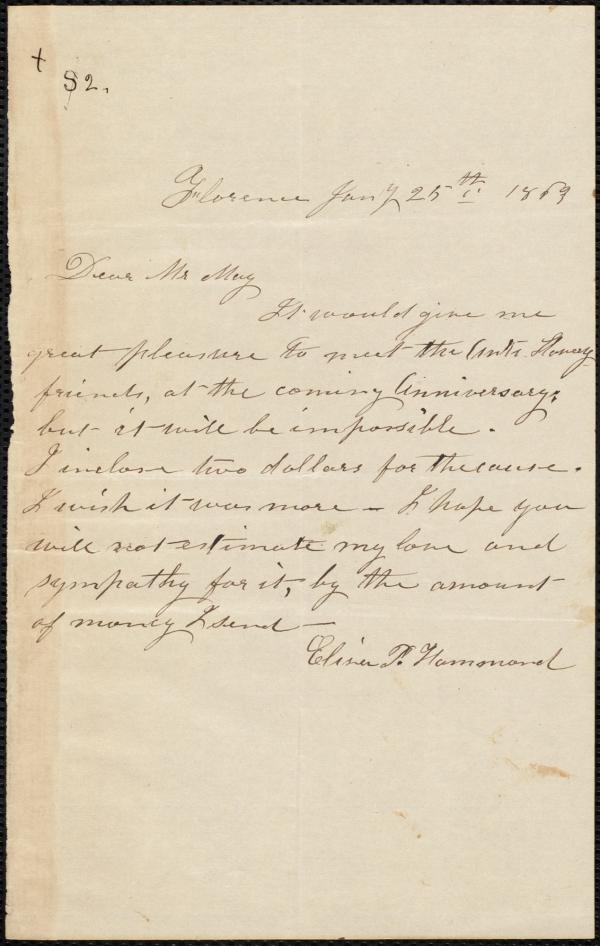 +
$2.
Florence Jany 25th 1869
Dear Mr May
It would give me
great pleasure to meet the Anti. Slavery
friends, at the coming Anniversary;
but it will be impossible.
I inclose two dollars for the cause.
I wish it was more — I hope you
will not estimate my love and
sympathy for it, by the amount
of money I send —
Elisa P. Hammond